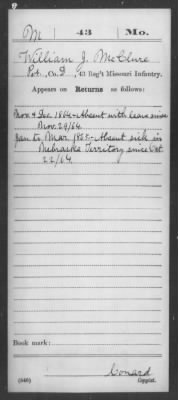 M 43 Mo.
William J. McClure
Pvt., Co. D, 43 Reg't Missouri Infantry.
Appears on Returns as follows:
Nov & Dec 1864 - Absent with leave since
Nov. 29/64.
Jan to Mar 1865 - Absent sick in
Nebraska Territory since Oct
22/64
Book mark:
Conard
(546) Copyist.